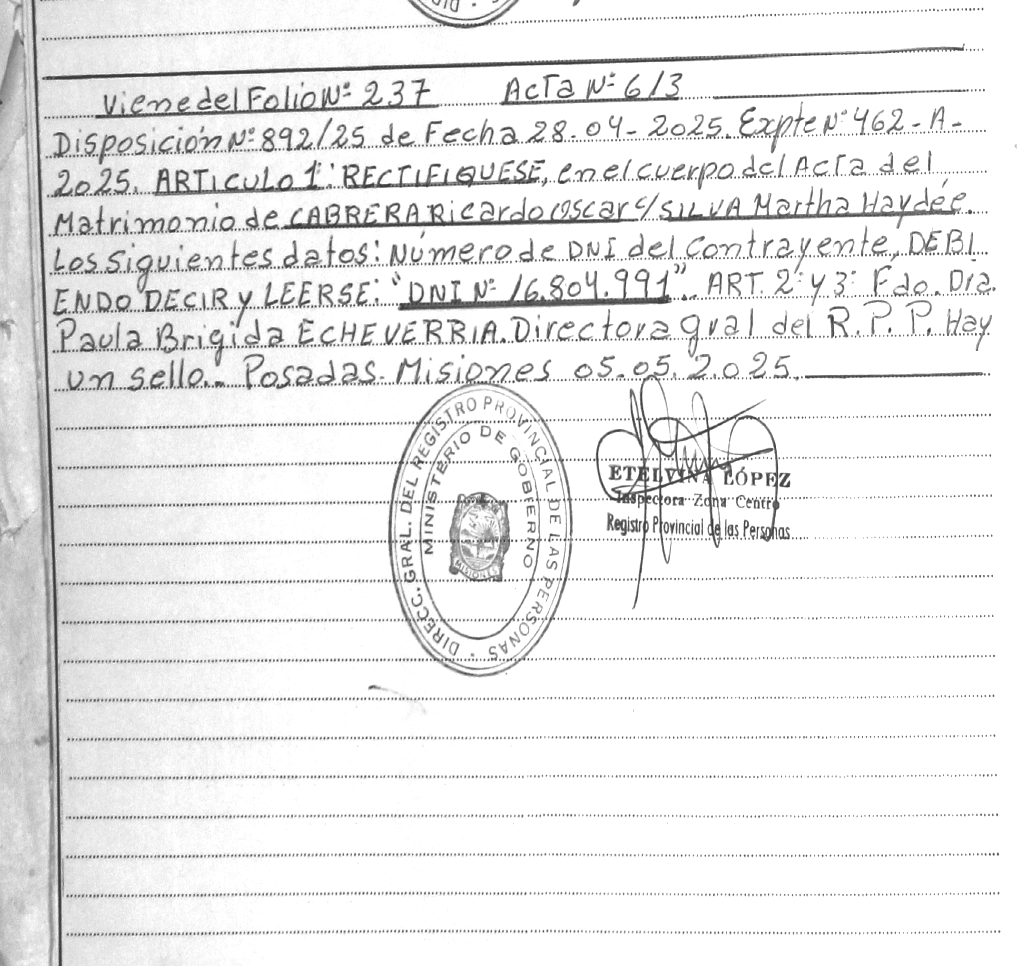 Viene del Folio Nº 237 Acta Nº 613
Disposición Nº 892/25 de Fecha 28-04-2025. Expte Nº 462-A-
2025. ARTICULO 1º: RECTIFIQUESE, en el cuerpo del Acta del
Matrimonio de CABRERA Ricardo Oscar c/ SILVA Martha Haydée.
Los siguientes datos: Número de DNI del Contrayente, DEBI
ENDO DECIR y LEERSE: "DNI Nº 16.804.991". ART. 2º y 3º Fdo. Dra.
Paula Brigida ECHEVERRIA. Directora gral del R. P. P. Hay
un sello.. Posadas. Misiones 05.05.2.025.
DIRECC. GRAL. DEL REGISTRO PROVINCIAL DE LAS PERSONAS
MINISTERIO DE GOBIERNO
MISIONES
ETELVINA LÓPEZ
Inspectora Zona Centro
Registro Provincial de las Personas